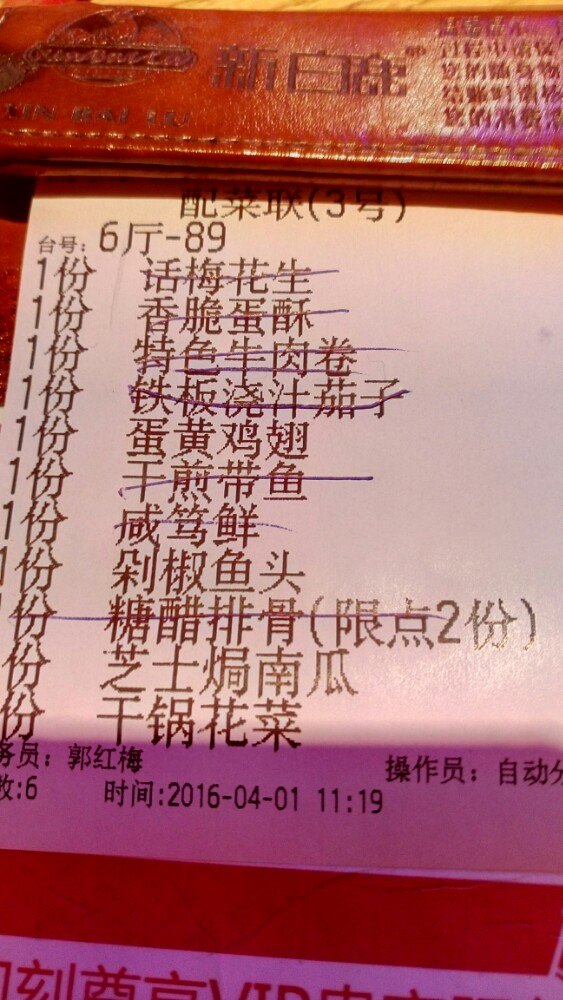 新白鹿
XIN BAI LU
配菜联(3号)
台号: 6厅-89
1份 话梅花生
1份 香脆蛋酥
1份 特色牛肉卷
1份 铁板浇汁茄子
1份 蛋黄鸡翅
1份 干煎带鱼
1份 咸笃鲜
1份 剁椒鱼头
1份 糖醋排骨(限点2份)
份 芝士焗南瓜
份 干锅花菜
务员: 郭红梅
操作员: 自动分
数:6 时间:2016-04-01 11:19
即刻尊享VIP